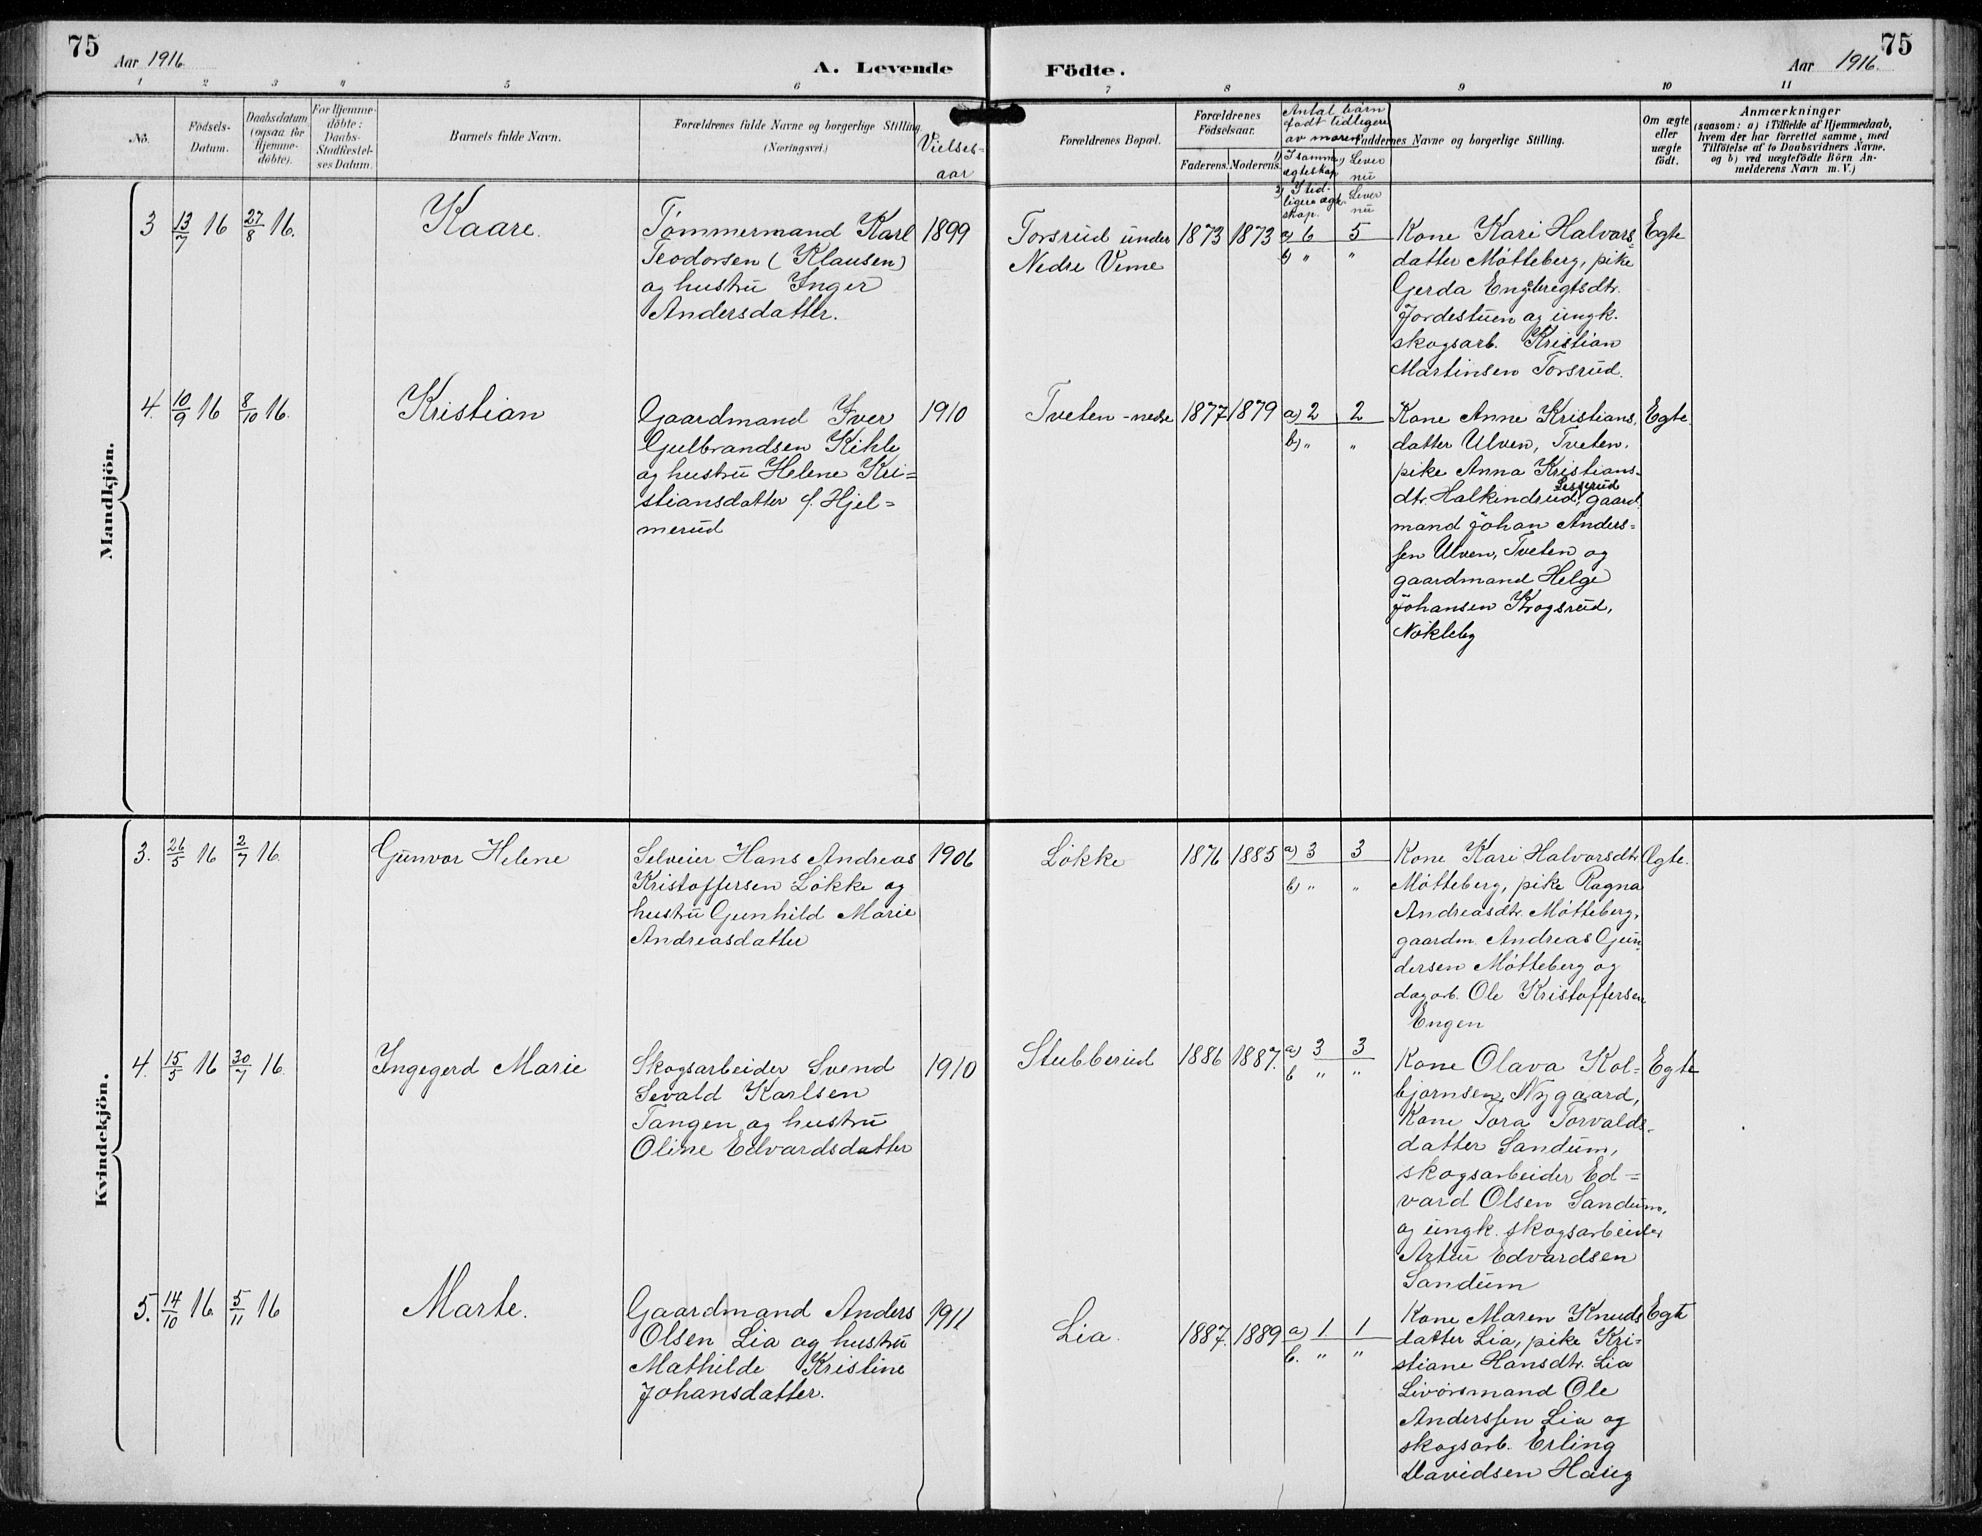 75
Aar 1916
A. Levende
Födte.
Aar 1916.
75
1 2 3 4 5 6 7 8 9 10 11
No.
Födsels-
Datum.
Daabsdatum
(ogsaa for
Hjemme-
döbte).
For Hjemme-
döbte:
Daabs-
Stadfæstel-
ses Datum.
Barnets fulde Navn.
Forældrenes fulde Navne og borgerlige Stilling
(Næringsvei.)
Vielses-
aar
Forældrenes Bopæl.
Forældrenes
Födselsaar.
Faderens. Moderens.
Antal barn
født tidligere
av moren
1) I samme
ægteskap
Lever
nu
2) I tid-
ligere ægt-
skap.
Lever
nu
Faddernes Navne og borgerlige Stilling.
Om ægte
eller
uægte
födt.
Anmærkninger
(saasom: a) i Tilfælde af Hjemmedaab,
hvem der har forrettet samme, med
Tilföielse af to Daabsvidners Navne.
og b) ved uægtefödte Börn An-
melderens Navn m. V.)
Mandkjön.
3 13/7 16 27/8 16.
Kaare.
Tømmermand Karl
Teodorsen (Klausen)
og hustru Inger
Andersdatter.
1899
Torsrud under
Nedre Veme
1873 1873 a) 6 5
b) " "
Kone Kari Halvors-
datter Møtteberg, pike
Gerda Engebregtsdtr.
Jordestuen og ungk.
skogsarb. Kristian
Martinsen Torsrud.
Egte
4. 10/9 16 8/10 16.
Kristian
Gaardmand Iver
Gulbrandsen Kihle
og hustru Helene Kri=
stiansdatter f. Hjel=
merud
1910
Tveten - nedre
1877 1879 a) 2 2
b) " "
Kone Anne Kristians.
datter Ulven, Tveten,
pike Anna Kristians-
dtr. Halkindrud, gaard
mand Johan Anders-
sen Ulven, Tveten og
gaardmand Helge
Johansen Krogsrud,
Nøkleby
Egte.
Kvindekjön.
3. 26/5 16 2/7 16.
Gunvor Helene
Selveier Hans Andreas
Kristoffersen Løkke og
hustru Gunhild Marie
Andreasdatter
1906
Løkke
1876 1885 a) 3 3
b) " "
Kone Kari Halvorsdtr
Møtteberg, pike Ragna
Andreasdtr. Møtteberg,
gaardm. Andreas Gun-
dersen Møtteberg og
dagarb. Ole Kristoffersen
Engen
Egte.
4. 15/5 16 30/7 16.
Ingegerd Marie
Skogsarbeider Svend
Sevald Karlsen
Tangen og hustru
Oline Edvardsdatter
1910
Stubberud
1886 1887. a) 3 3
b " "
Kone Olava Kol=
bjørnsen, Nygaard,
Kone Tora Torvalds-
datter Sandum,
skogsarbeider Ed=
vard Olsen Sandum,
og ungk. skogsarbeider
Artur Edvardsen
Sandum
Egte
5. 14/10 16. 5/11 16
Marte.
Gaardmand Anders
Olsen Lia og hustru
Mathilde Kristine
Johansdatter.
1911
Lia.
1887. 1889 a) 1 1
b. " "
Kone Maren Knuds
datter Lia, pike Kri=
stiane Hansdtr. Lia
Livørsmand Ole
Anderssen Lia og
skogsarb. Erling
Davidsen Haug
Egte